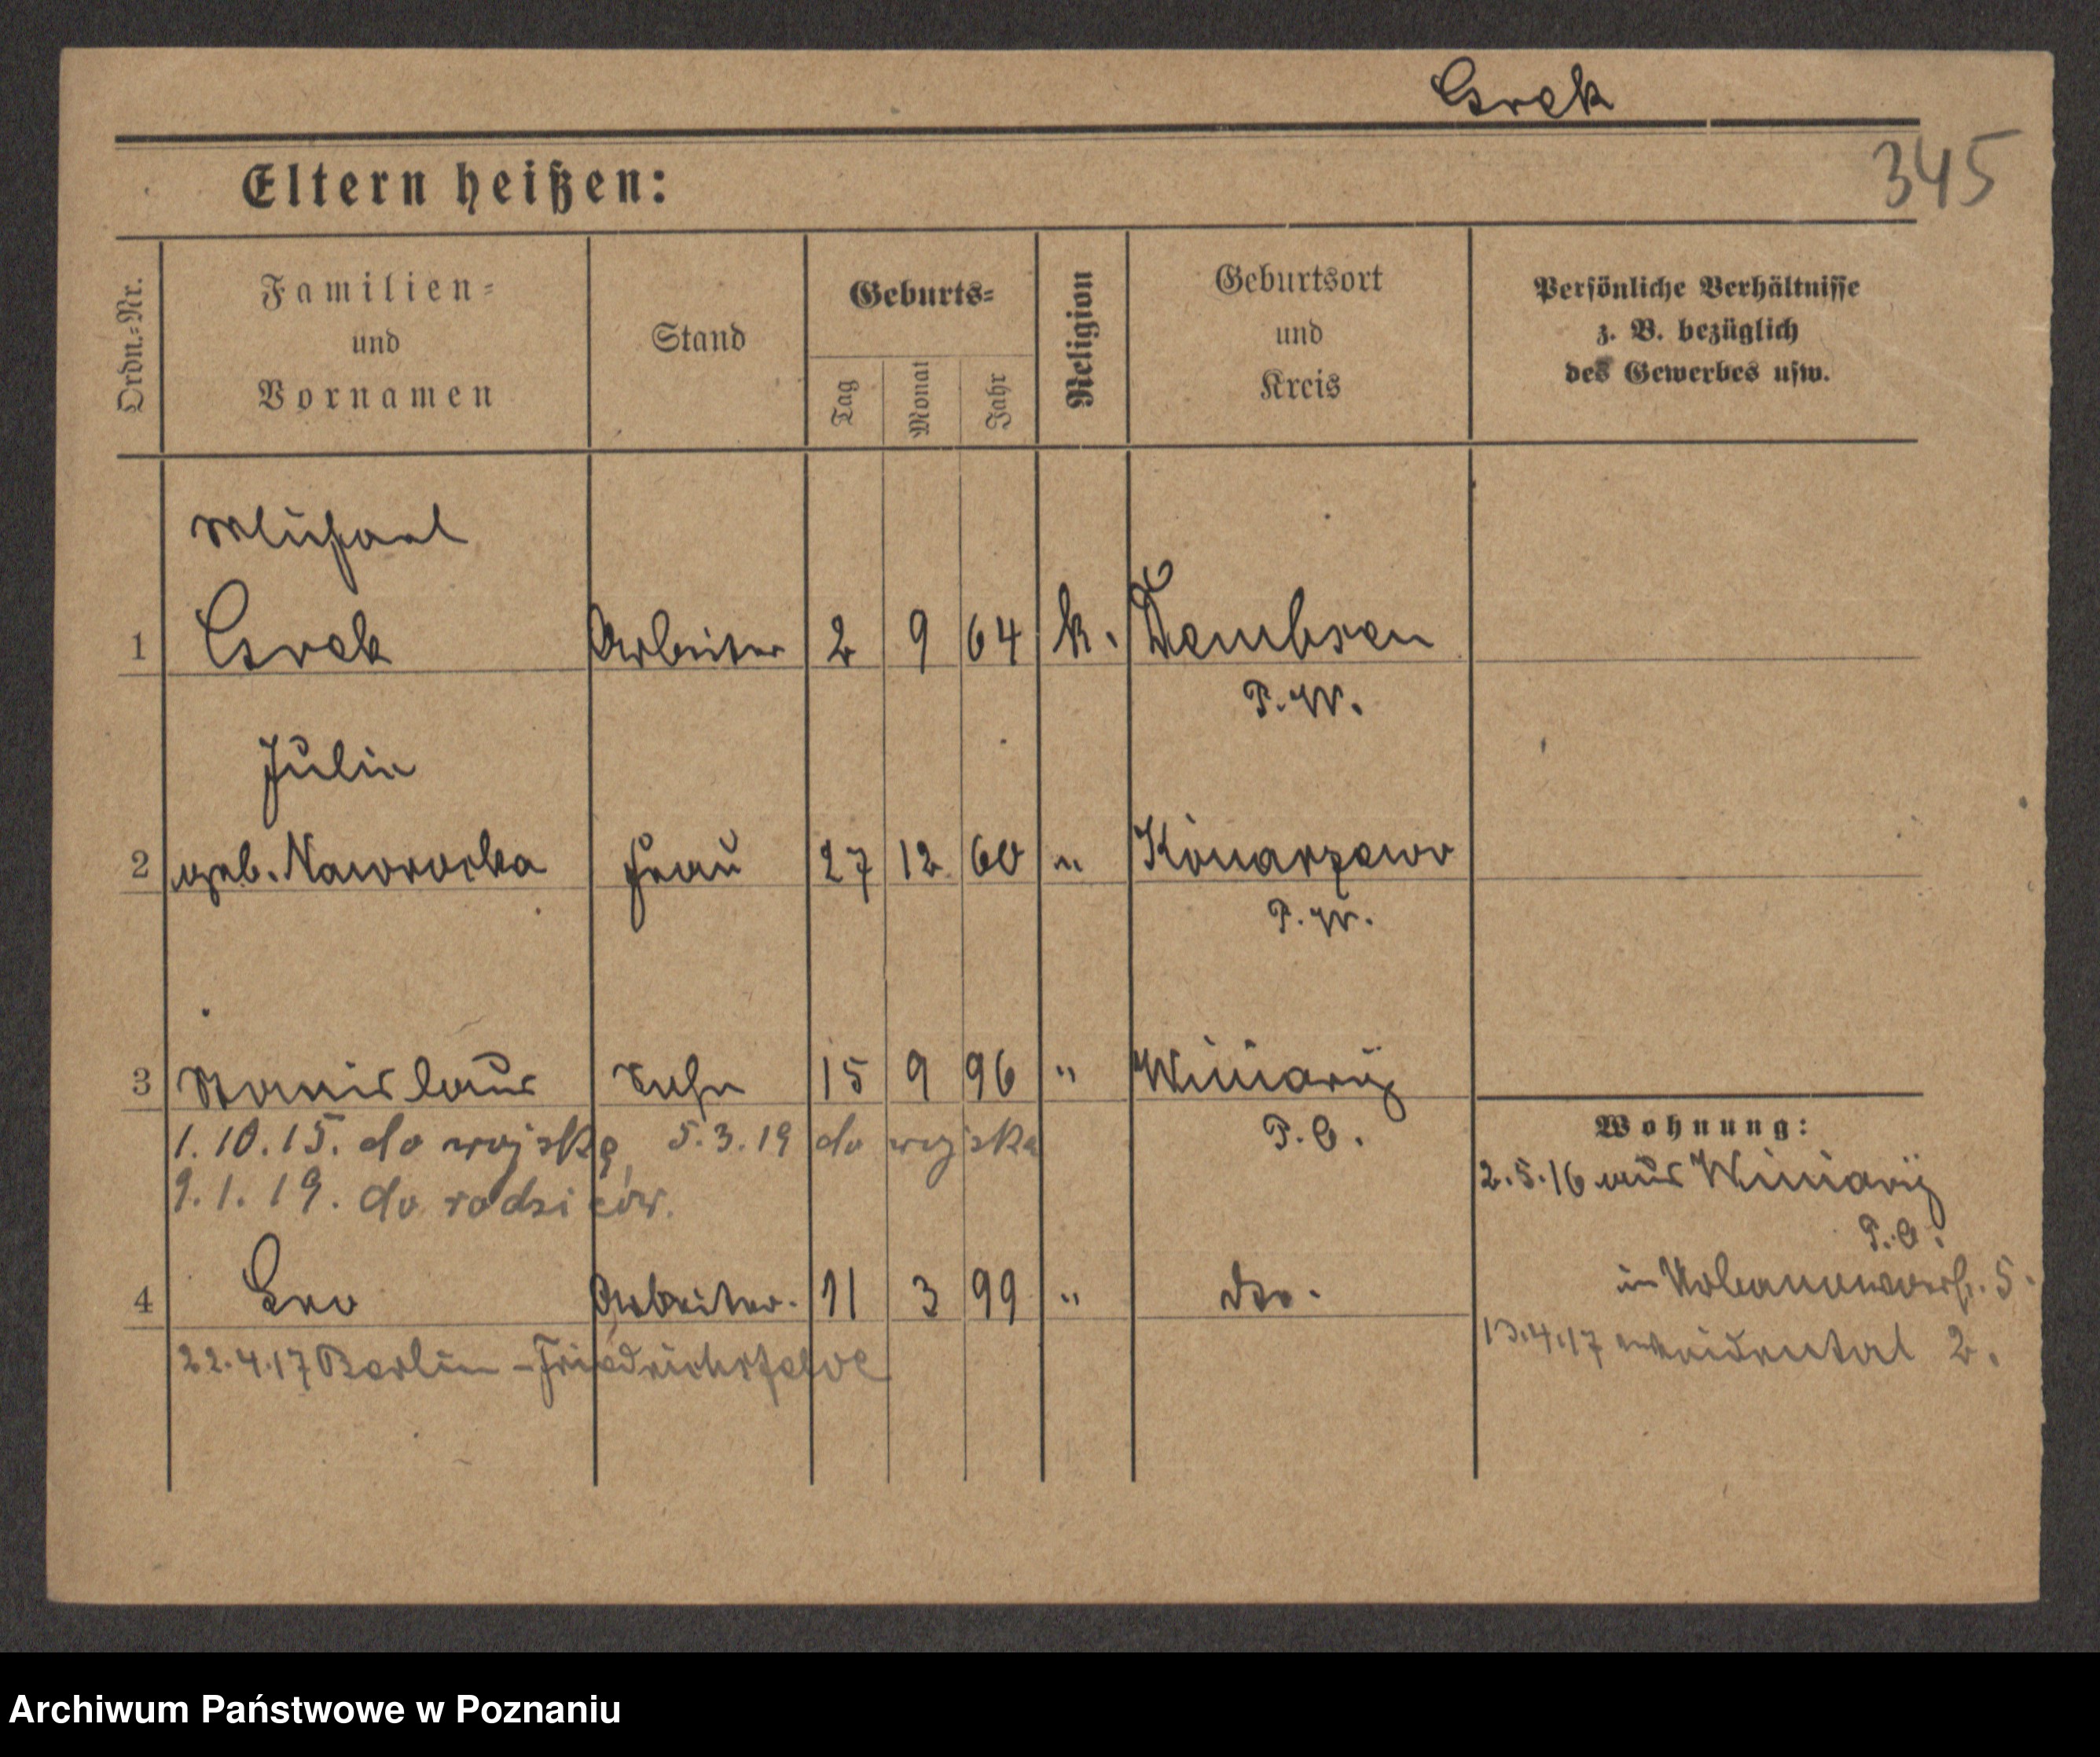 Grek
345
Eltern heißen:
Ordn.-Nr.
Familien-
und
Vornamen
Stand
Geburts-
Tag
Monat
Jahr
Religion
Geburtsort
und
Kreis
Persönliche Verhältnisse
z. B. bezüglich
des Gewerbes usw.
Michael
1 Grek Arbeiter 2 9 64 k. Dembsen
P.W.
Julie
2 geb. Nawrocka Frau 27 12 60 " Konarzewo
P.W.
3 Stanislaus Sohn 15 9 96 " Winiary
P.O.
1.10.15. do wojska, 5.3.19 do wojska
9.1.19. do rodziców.
Wohnung:
2.5.16 aus Winiary
P.O.
in 5.
4 Leo Arbeiter. 11 3 99 " do.
13.4.17 2.
22.4.17 Berlin - Friedrichsfelde
Archiwum Państwowe w Poznaniu